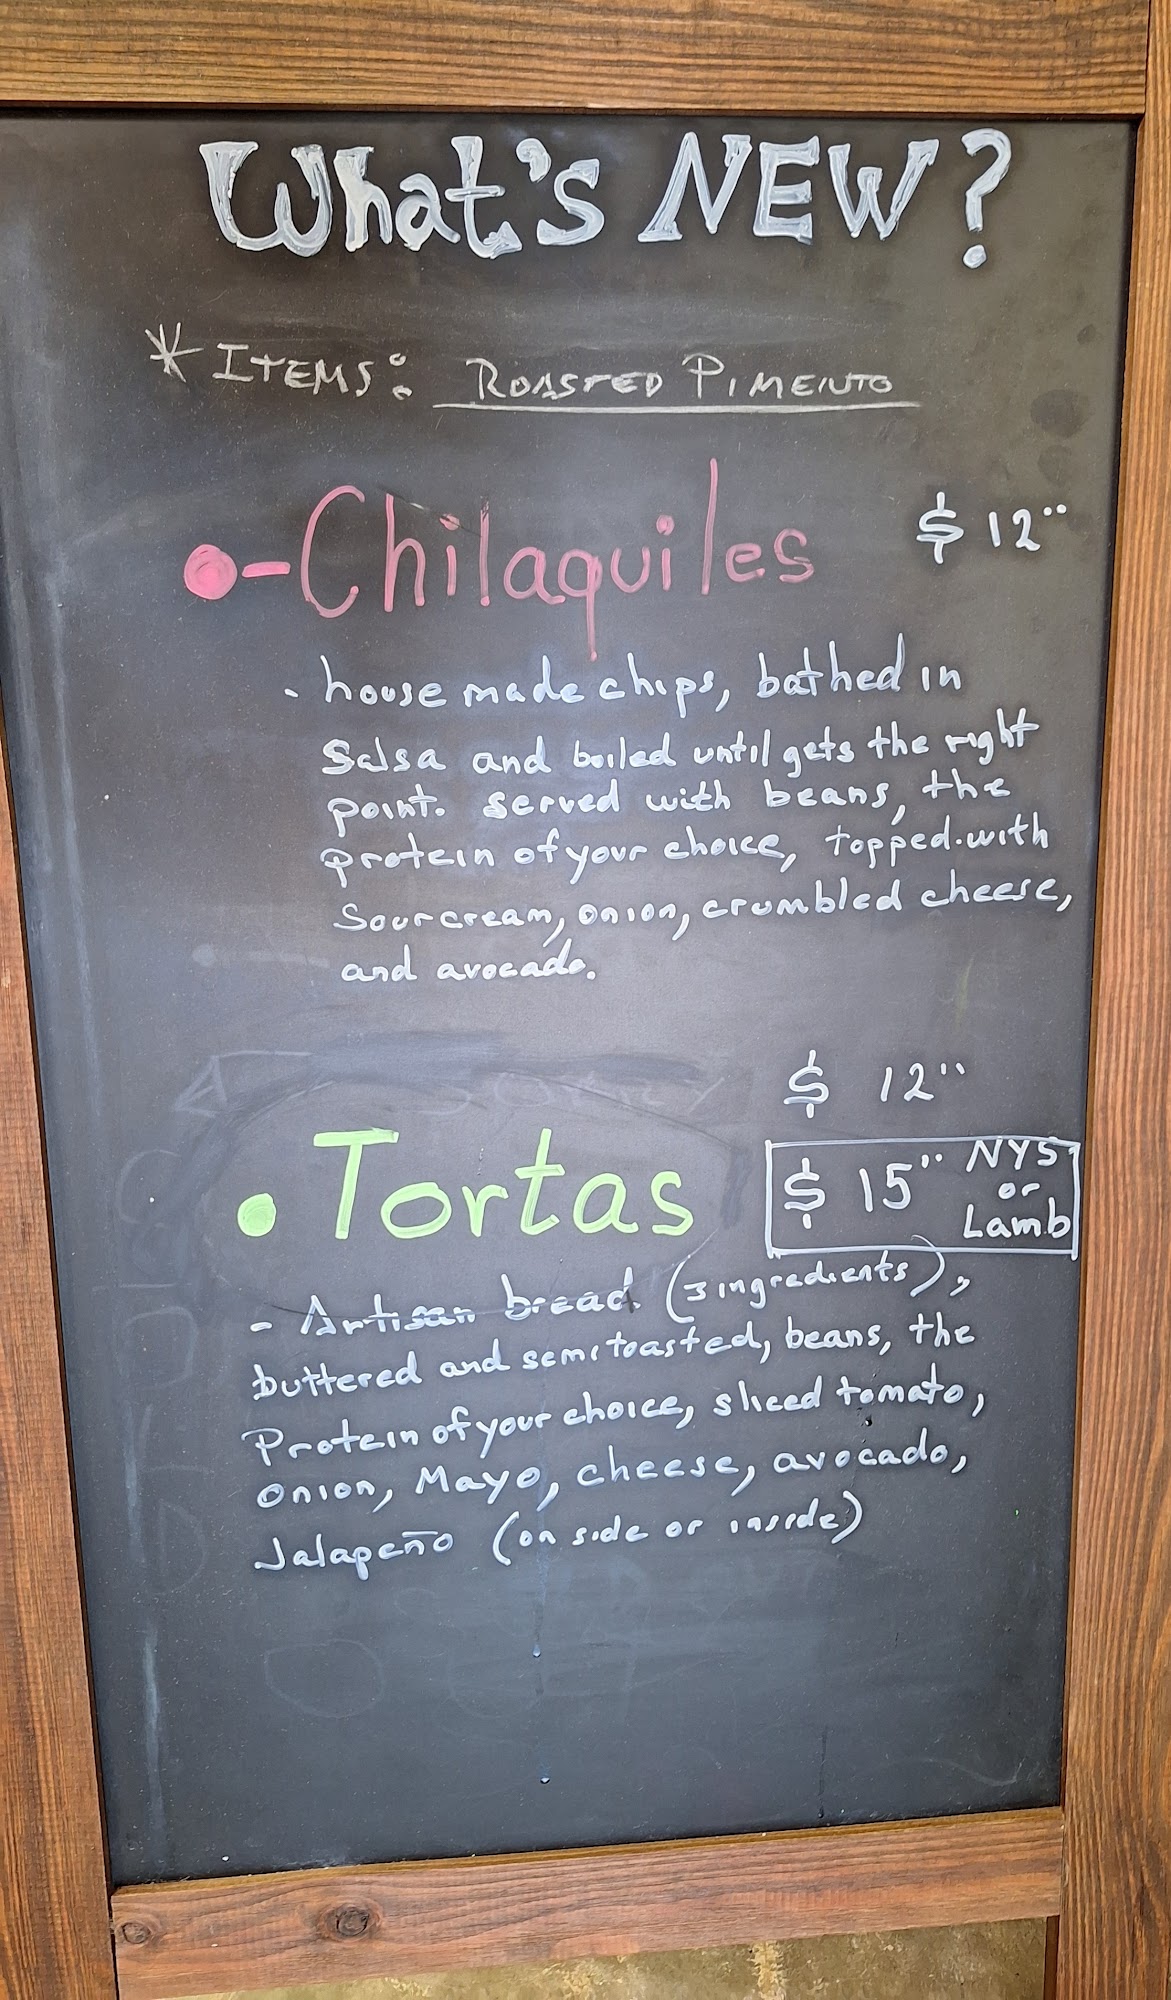 What's NEW?
* ITEMS: ROASTED PIMENTO
•-Chilaquiles $12¨
- house made chips, bathed in
Salsa and boiled until gets the right
point. served with beans, the
protein of your choice, topped.with
Sour cream, onion, crumbled cheese,
and avocado.
$ 12¨
•Tortas $ 15¨ NYS
or
Lamb
- Artisan bread (3 ingredients),
buttered and semitoasted, beans, the
Protein of your choice, sliced tomato,
Onion, Mayo, cheese, avocado,
Jalapeño (on side or inside)